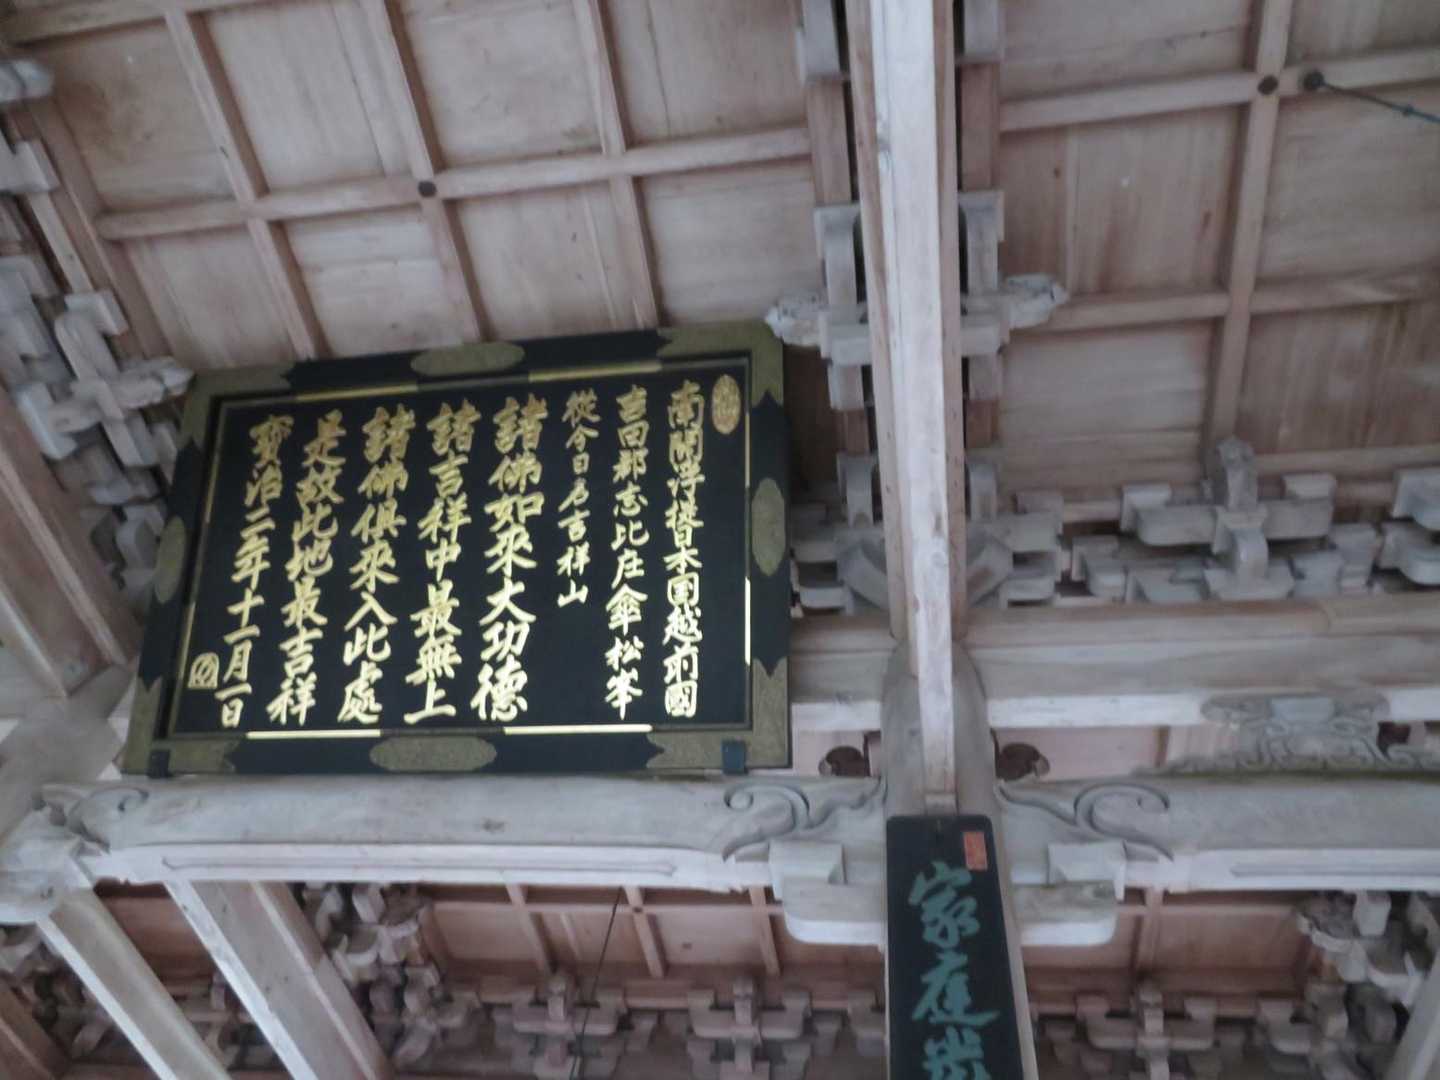 南閻浮提日本国越前國
吉田郡志比庄傘松峯
從今日名吉祥山
諸佛如來大功德
諸吉祥中最無上
諸佛俱來入此處
是故此地最吉祥
寳治二年十一月一日
家庭